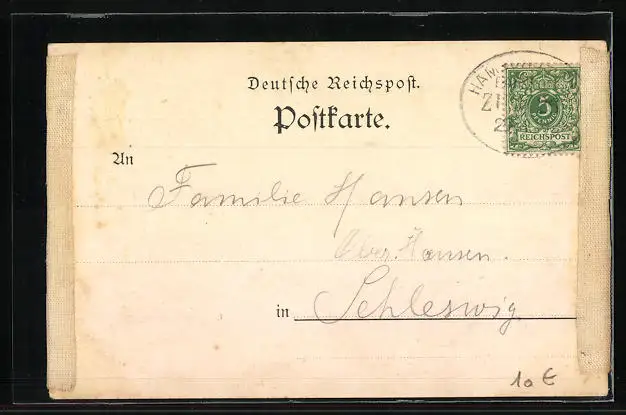 Deutsche Reichspost.
Postkarte.
HAM
ZU
2
5
PFENNIG
REICHSPOST
An
Familie Hansen
Ober. Hansen.
in Schleswig
10 €